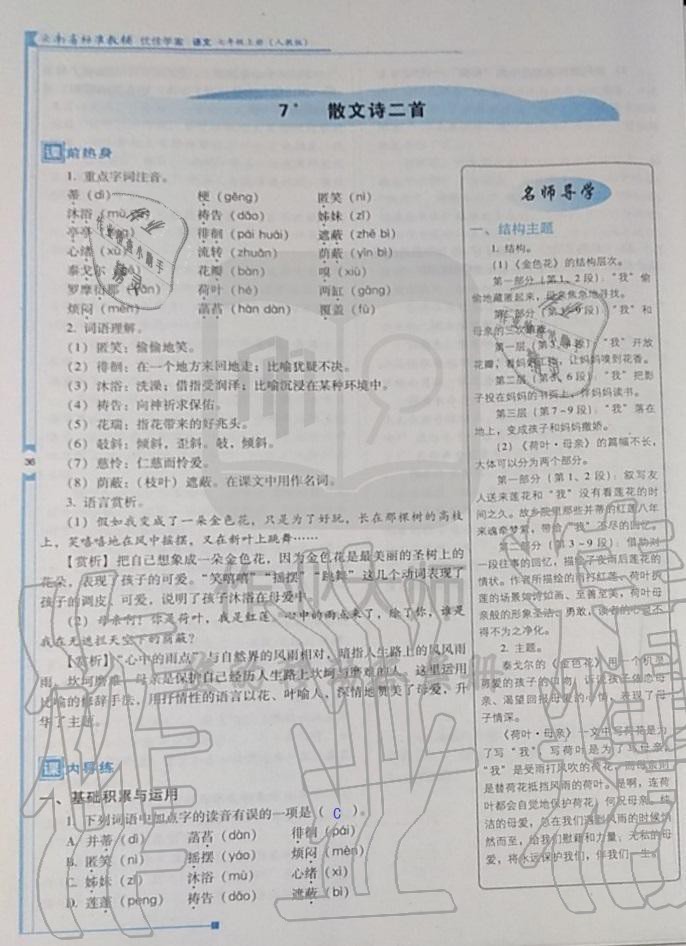 云南省标准教辅 优佳学案 语文 七年级上册（人教版）
7* 散文诗二首
课前热身
1. 重点字词注音。
蒂（dì） 梗（gěng） 匿笑（nì）
沐浴（mù） 祷告（dǎo） 姊妹（zǐ）
亭亭 徘徊（pái huái） 遮蔽（zhē bì）
心绪（xù） 流转（zhuǎn） 荫蔽（yīn bì）
泰戈尔 花瓣（bàn） 嗅（xiù）
罗摩衍那 荷叶（hé） 两缸（gāng）
烦闷（mèn） 菡萏（hàn dàn） 覆盖（fù）
2. 词语理解。
（1）匿笑：偷偷地笑。
（2）徘徊：在一个地方来回地走；比喻犹疑不决。
（3）沐浴：洗澡；借指受润泽；比喻沉浸在某种环境中。
（4）祷告：向神祈求保佑。
（5）花瑞：指花带来的好兆头。
（6）攲斜：倾斜，歪斜。攲，倾斜。
（7）慈怜：仁慈而怜爱。
（8）荫蔽：（枝叶）遮蔽。在课文中用作名词。
3. 语言赏析。
（1）假如我变成了一朵金色花，只是为了好玩，长在那棵树的高枝
上，笑嘻嘻地在风中摇摆，又在新叶上跳舞……
【赏析】把自己想象成一朵金色花，因为金色花是最美丽的圣树上的
花朵，表现了孩子的可爱。“笑嘻嘻”“摇摆”“跳舞”这几个动词表现了
孩子的调皮、可爱，说明了孩子沐浴在母爱中。
（2）母亲啊！你是荷叶，我是红莲，心中的雨点来了，除了你，谁是
我在无遮拦天空下的荫蔽？
【赏析】“心中的雨点”与自然界的风雨相对，暗指人生路上的风风雨
雨、坎坷磨难。母亲是保护自己经历人生路上坎坷与磨难的人。这里运用
比喻的修辞手法，用抒情性的语言以花、叶喻人，深情地赞美了母爱，升
华了主题。
课内导练
一、基础积累与运用
1. 下列词语中加点字的读音有误的一项是（ C ）。
A. 并蒂（dì） 菡萏（dàn） 徘徊（pái）
B. 匿笑（nì） 摇摆（yáo） 烦闷（mèn）
C. 姊妹（zǐ） 沐浴（mù） 心绪（xì）
D. 莲蓬（péng） 祷告（dǎo） 遮蔽（bì）
36
名师导学
一、结构主题
1. 结构。
（1）《金色花》的结构层次。
第一部分（第1、2段）：“我”偷
偷地藏匿起来，母亲焦急地寻找。
第二部分（第3～9段）：“我”和
母亲的三次嬉戏。
第一层（第3、4段）：“我”开放
花瓣，看妈妈工作，让妈妈嗅到花香。
第二层（第5、6段）：“我”把影
子投在妈妈的书页上，伴妈妈读书。
第三层（第7～9段）：“我”落在
地上，变成孩子和妈妈撒娇。
（2）《荷叶·母亲》的篇幅不长，
大体可以分为两个部分。
第一部分（第1、2段）：叙写友
人送来莲花和“我”没有看莲花的时
间之久。故乡院里那些并蒂的红莲八年
来魂牵梦萦，带给“我”不尽的回忆。
第二部分（第3～9段）：借助对
一段往事的回忆，描绘了夜雨后莲花的
情状。作者所描绘的雨打红莲、荷叶护
莲的场景如诗如画、至善至美，荷叶母
亲般的形象圣洁、勇敢，读者的心灵不
得不为之净化。
2. 主题。
泰戈尔的《金色花》用一个机灵
可爱的孩子的口吻，诉说孩子依恋母
亲、渴望回报母爱的心情，表现了母
子情深。
《荷叶·母亲》一文中写荷花是为
了写“我”，写荷叶是为了写母亲。
“我”是受雨打风吹的荷花，而母亲则
是替荷花抵挡风雨的荷叶。是啊，连荷
叶都会自觉地保护荷花，何况母亲。纯
洁的母爱，总在我们遇到风雨的时候悄
然而至，给我们慰藉和力量；无私的母
爱，将永远保护我们，伴我们一生。